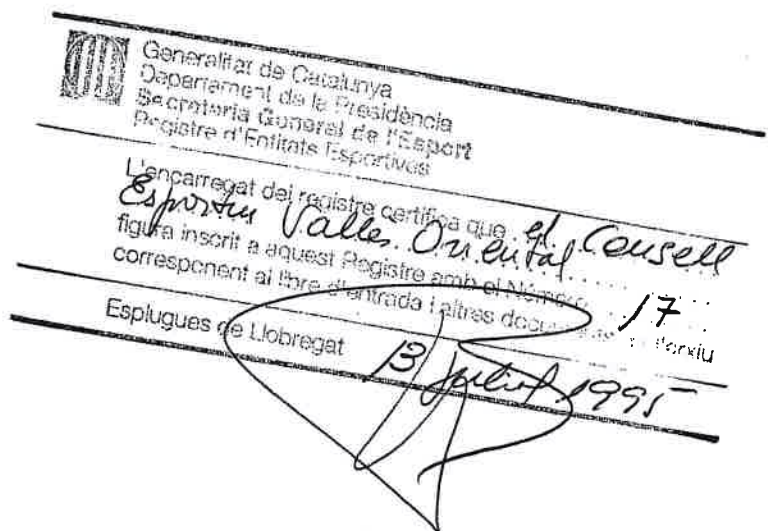 Generalitat de Catalunya
Departament de la Presidència
Secretaria General de l'Esport
Registre d'Entitats Esportives
L'encarregat del registre certifica que el Consell
Esportiu Vallès Oriental
figura inscrit a aquest Registre amb el Número 17
corresponent al llibre d'entrada i altres documents l'arxiu
Esplugues de Llobregat 13 juliol 1995